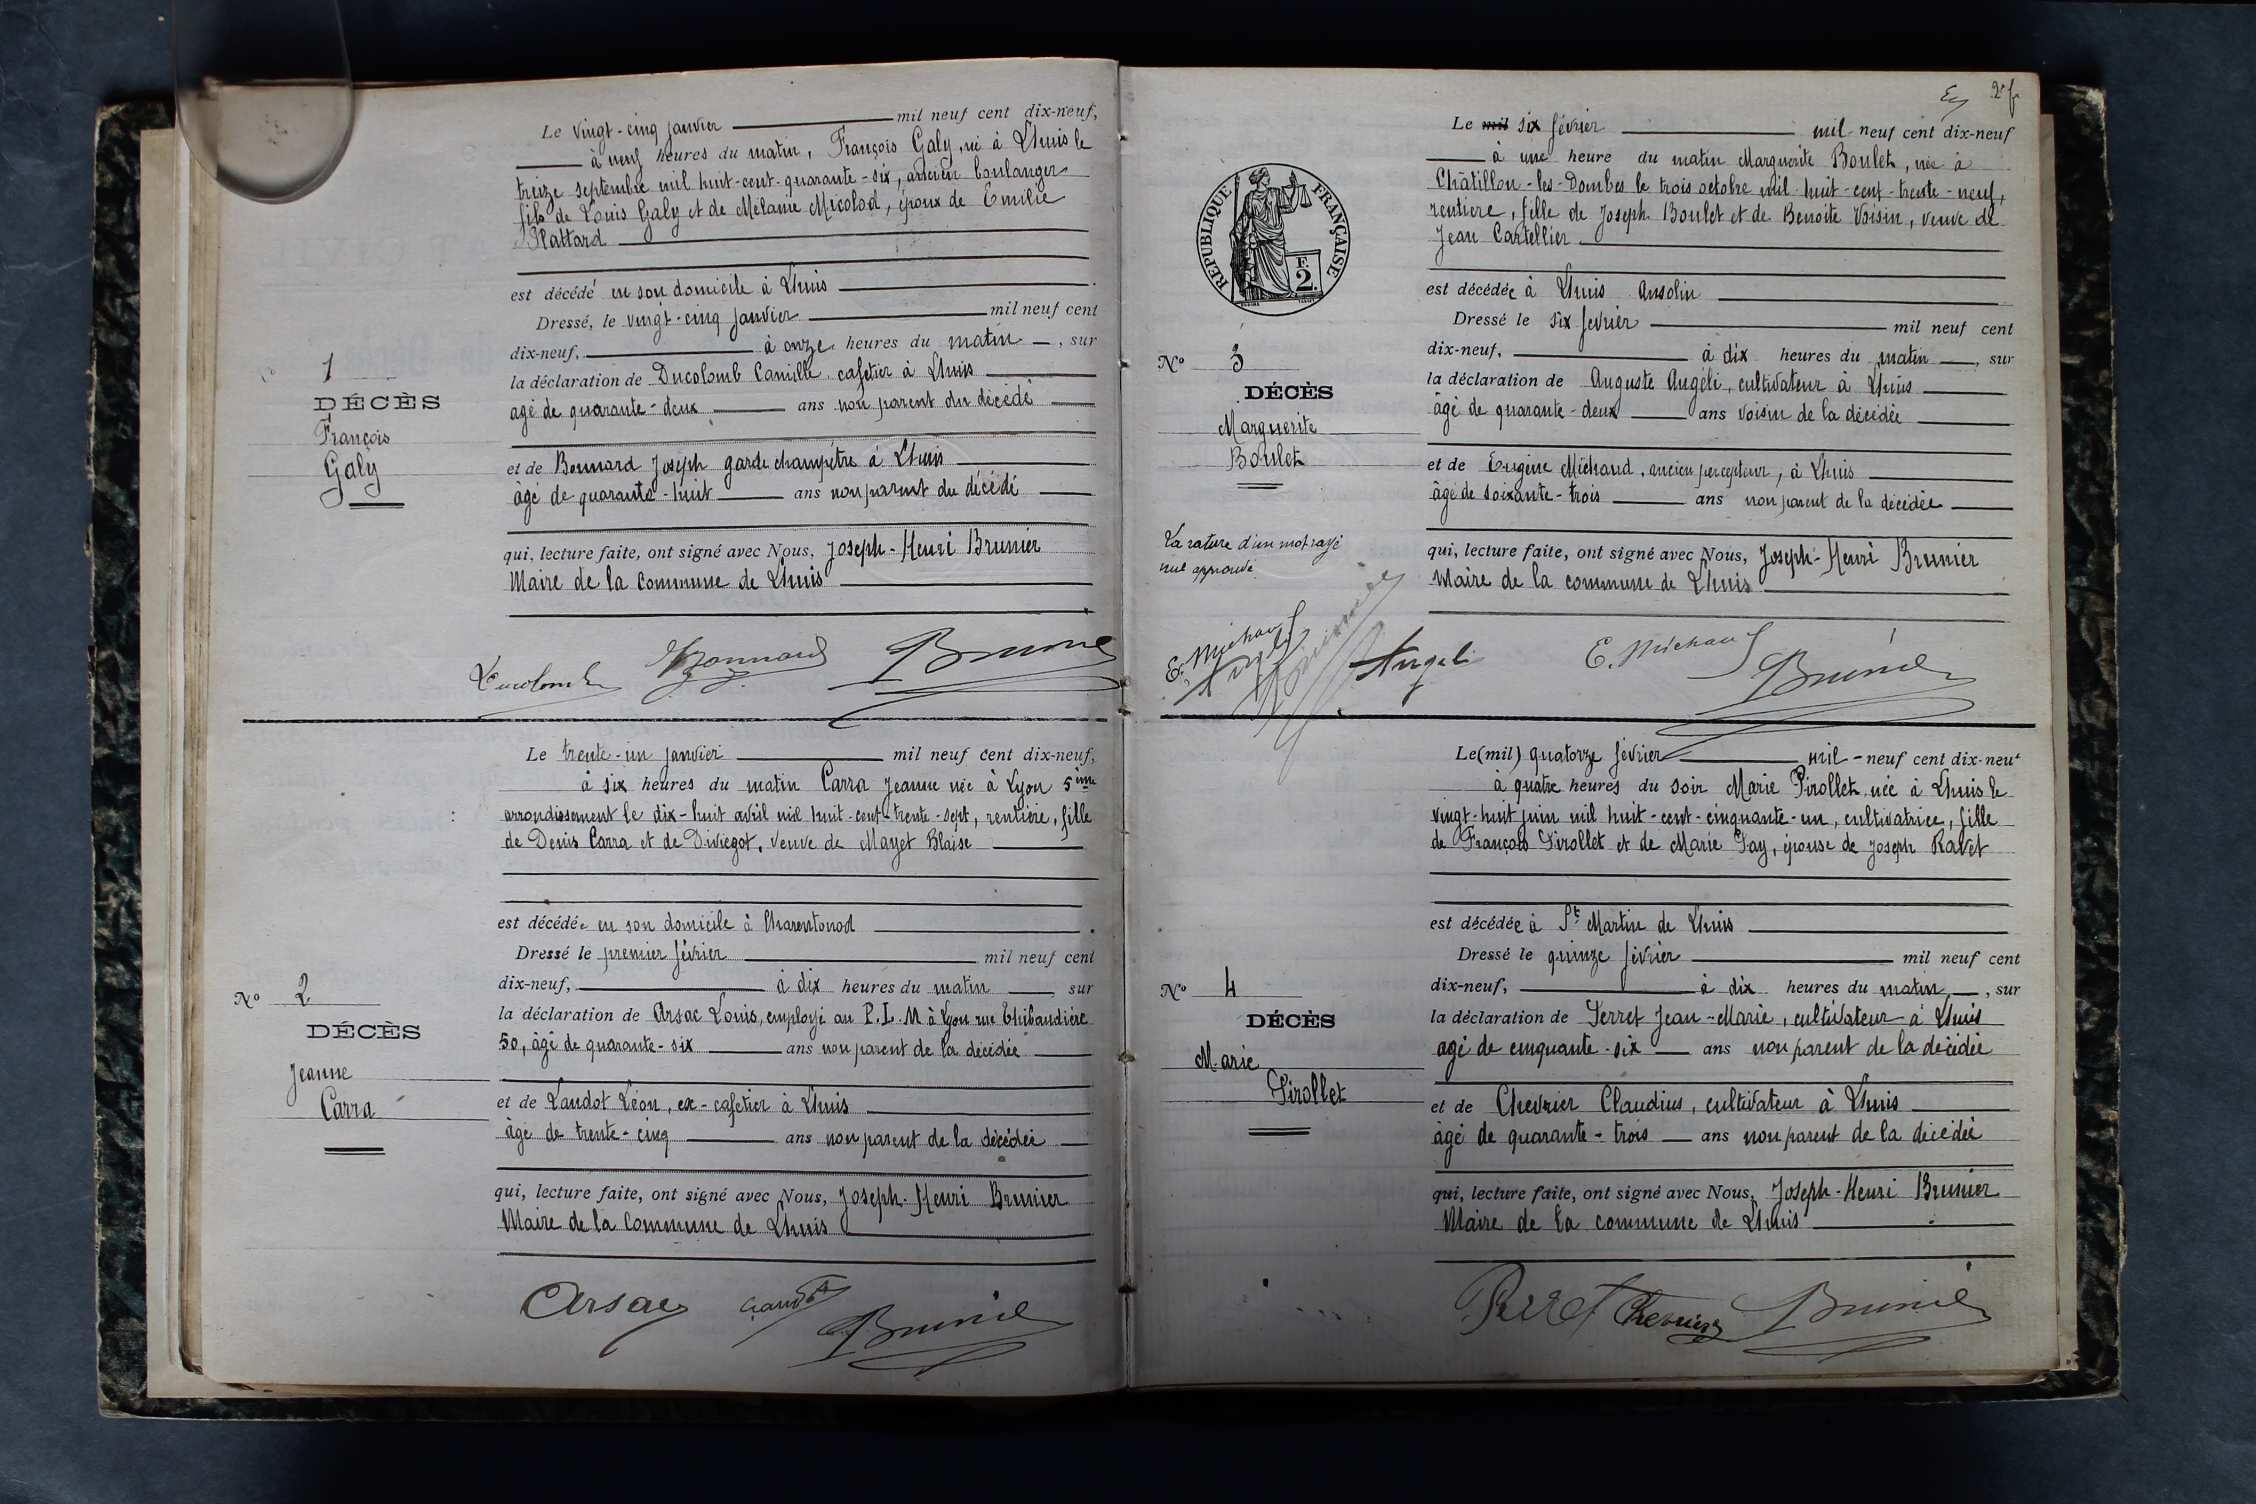 Le vingt-cinq janvier mil neuf cent dix-neuf,
à neuf heures du matin, François Galy, né à Lhuis le
treize septembre mil huit-cent-quarante-six, ancien boulanger
fils de Louis Galy et de Mélanie Micolod, époux de Emilie
Blattard
est décédé en son domicile à Lhuis
Dressé, le vingt-cinq janvier mil neuf cent
dix-neuf, à onze heures du matin, sur
la déclaration de Ducolomb Camille, cafetier à Lhuis
agé de quarante-deux ans non parent du décédé
et de Bonnard Joseph garde champêtre à Lhuis
âgé de quarante-huit ans non parent du décédé
qui, lecture faite, ont signé avec Nous, Joseph-Henri Brunier
Maire de la Commune de Lhuis
1
DÉCÈS
François
Galy
Ducolomb Bonnard Brunier
Le trente-un janvier mil neuf cent dix-neuf,
à six heures du matin Carra Jeanne née à Lyon 5ème
arrondissement le dix-huit avril mil huit-cent-trente-sept, rentière, fille
de Denis Carra et de Divregot, veuve de Mayet Blaise
est décédée en son domicile à Charentonod
Dressé le premier février mil neuf cent
dix-neuf, à dix heures du matin sur
la déclaration de Arsac Louis, employé au P.L.M à Lyon rue Thibaudière
50, âgé de quarante-six ans non parent de la décédée
et de Landot Léon, ex-cafetier à Lhuis
âgé de trente-cinq ans non parent de la décédée
qui, lecture faite, ont signé avec Nous, Joseph-Henri Brunier
Maire de la Commune de Lhuis
No 2
DÉCÈS
Jeanne
Carra
Arsac Landot Brunier
2e f
Le mil six février mil neuf cent dix-neuf
à une heure du matin Marguerite Boulet, née à
Châtillon-les-Dombes le trois octobre mil-huit-cent-trente-neuf,
rentière, fille de Joseph Boulet et de Benoite Voisin, veuve de
Jean Cartellier
est décédée à Lhuis Ansolin
Dressé le six février mil neuf cent
dix-neuf, à dix heures du matin, sur
la déclaration de Auguste Angéli, cultivateur à Lhuis
âgé de quarante-deux ans voisin de la décédée
et de Eugène Michaud, ancien percepteur, à Lhuis
âgé de soixante-trois ans non parent de la décédée
qui, lecture faite, ont signé avec Nous, Joseph-Henri Brunier
Maire de la commune de Lhuis
RÉPUBLIQUE FRANÇAISE
F.
2
No 3
DÉCÈS
Marguerite
Boulet
La rature d'un mot rayé
nul approuvé
E. Michaud
Angeli
Brunier
Angeli E. Michaud Brunier
Le (mil) quatorze février mil-neuf cent dix-neuf
à quatre heures du soir Marie Pirollet, née à Lhuis le
vingt-huit juin mil huit-cent-cinquante-un, cultivatrice, fille
de François Pirollet et de Marie Gay, épouse de Joseph Ravet
est décédée à St Martin de Lhuis
Dressé le quinze février mil neuf cent
dix-neuf, à dix heures du matin, sur
la déclaration de Perret Jean-Marie, cultivateur à Lhuis
agé de cinquante-six ans non parent de la décédée
et de Chevrier Claudius, cultivateur à Lhuis
âgé de quarante-trois ans non parent de la décédée
qui, lecture faite, ont signé avec Nous, Joseph-Henri Brunier
Maire de la commune de Lhuis
No 4
DÉCÈS
Marie
Pirollet
Perret Chevrier Brunier